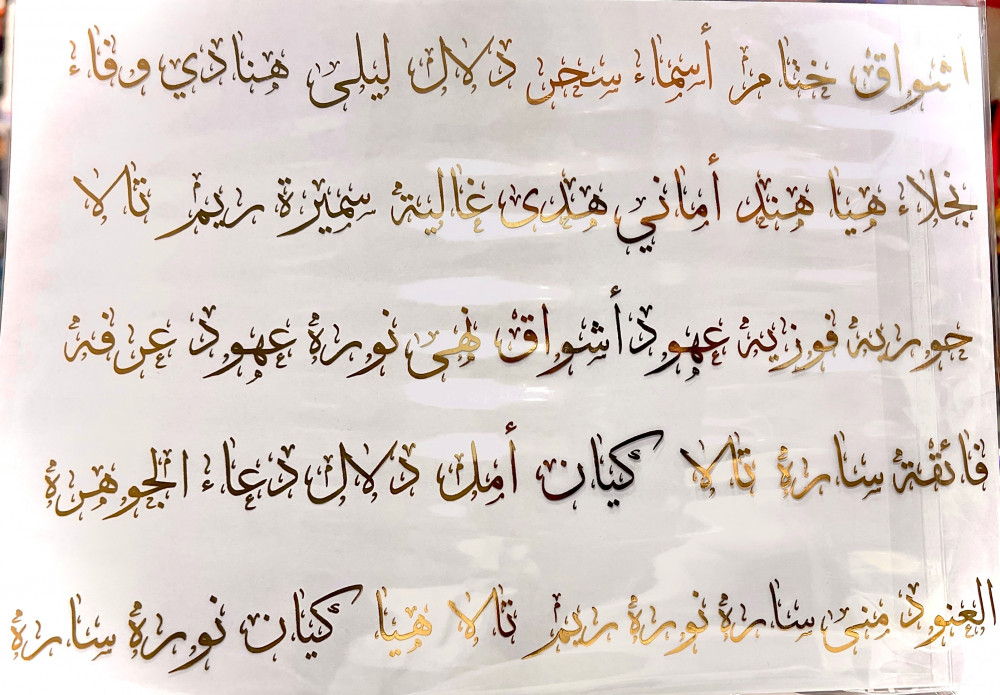 أشواق ختام أسماء سحر دلال ليلى هنادي وفاء
نجلاء هيا هند أماني هدى غالية سميرة ريم تالا
حوريه فوزيه عهود أشواق نهى نوره عهود عرفه
فائقة ساره تالا كيان أمل دلال دعاء الجوهره
العنود منى سارة نورة ريم تالا هيا كيان نوره ساره